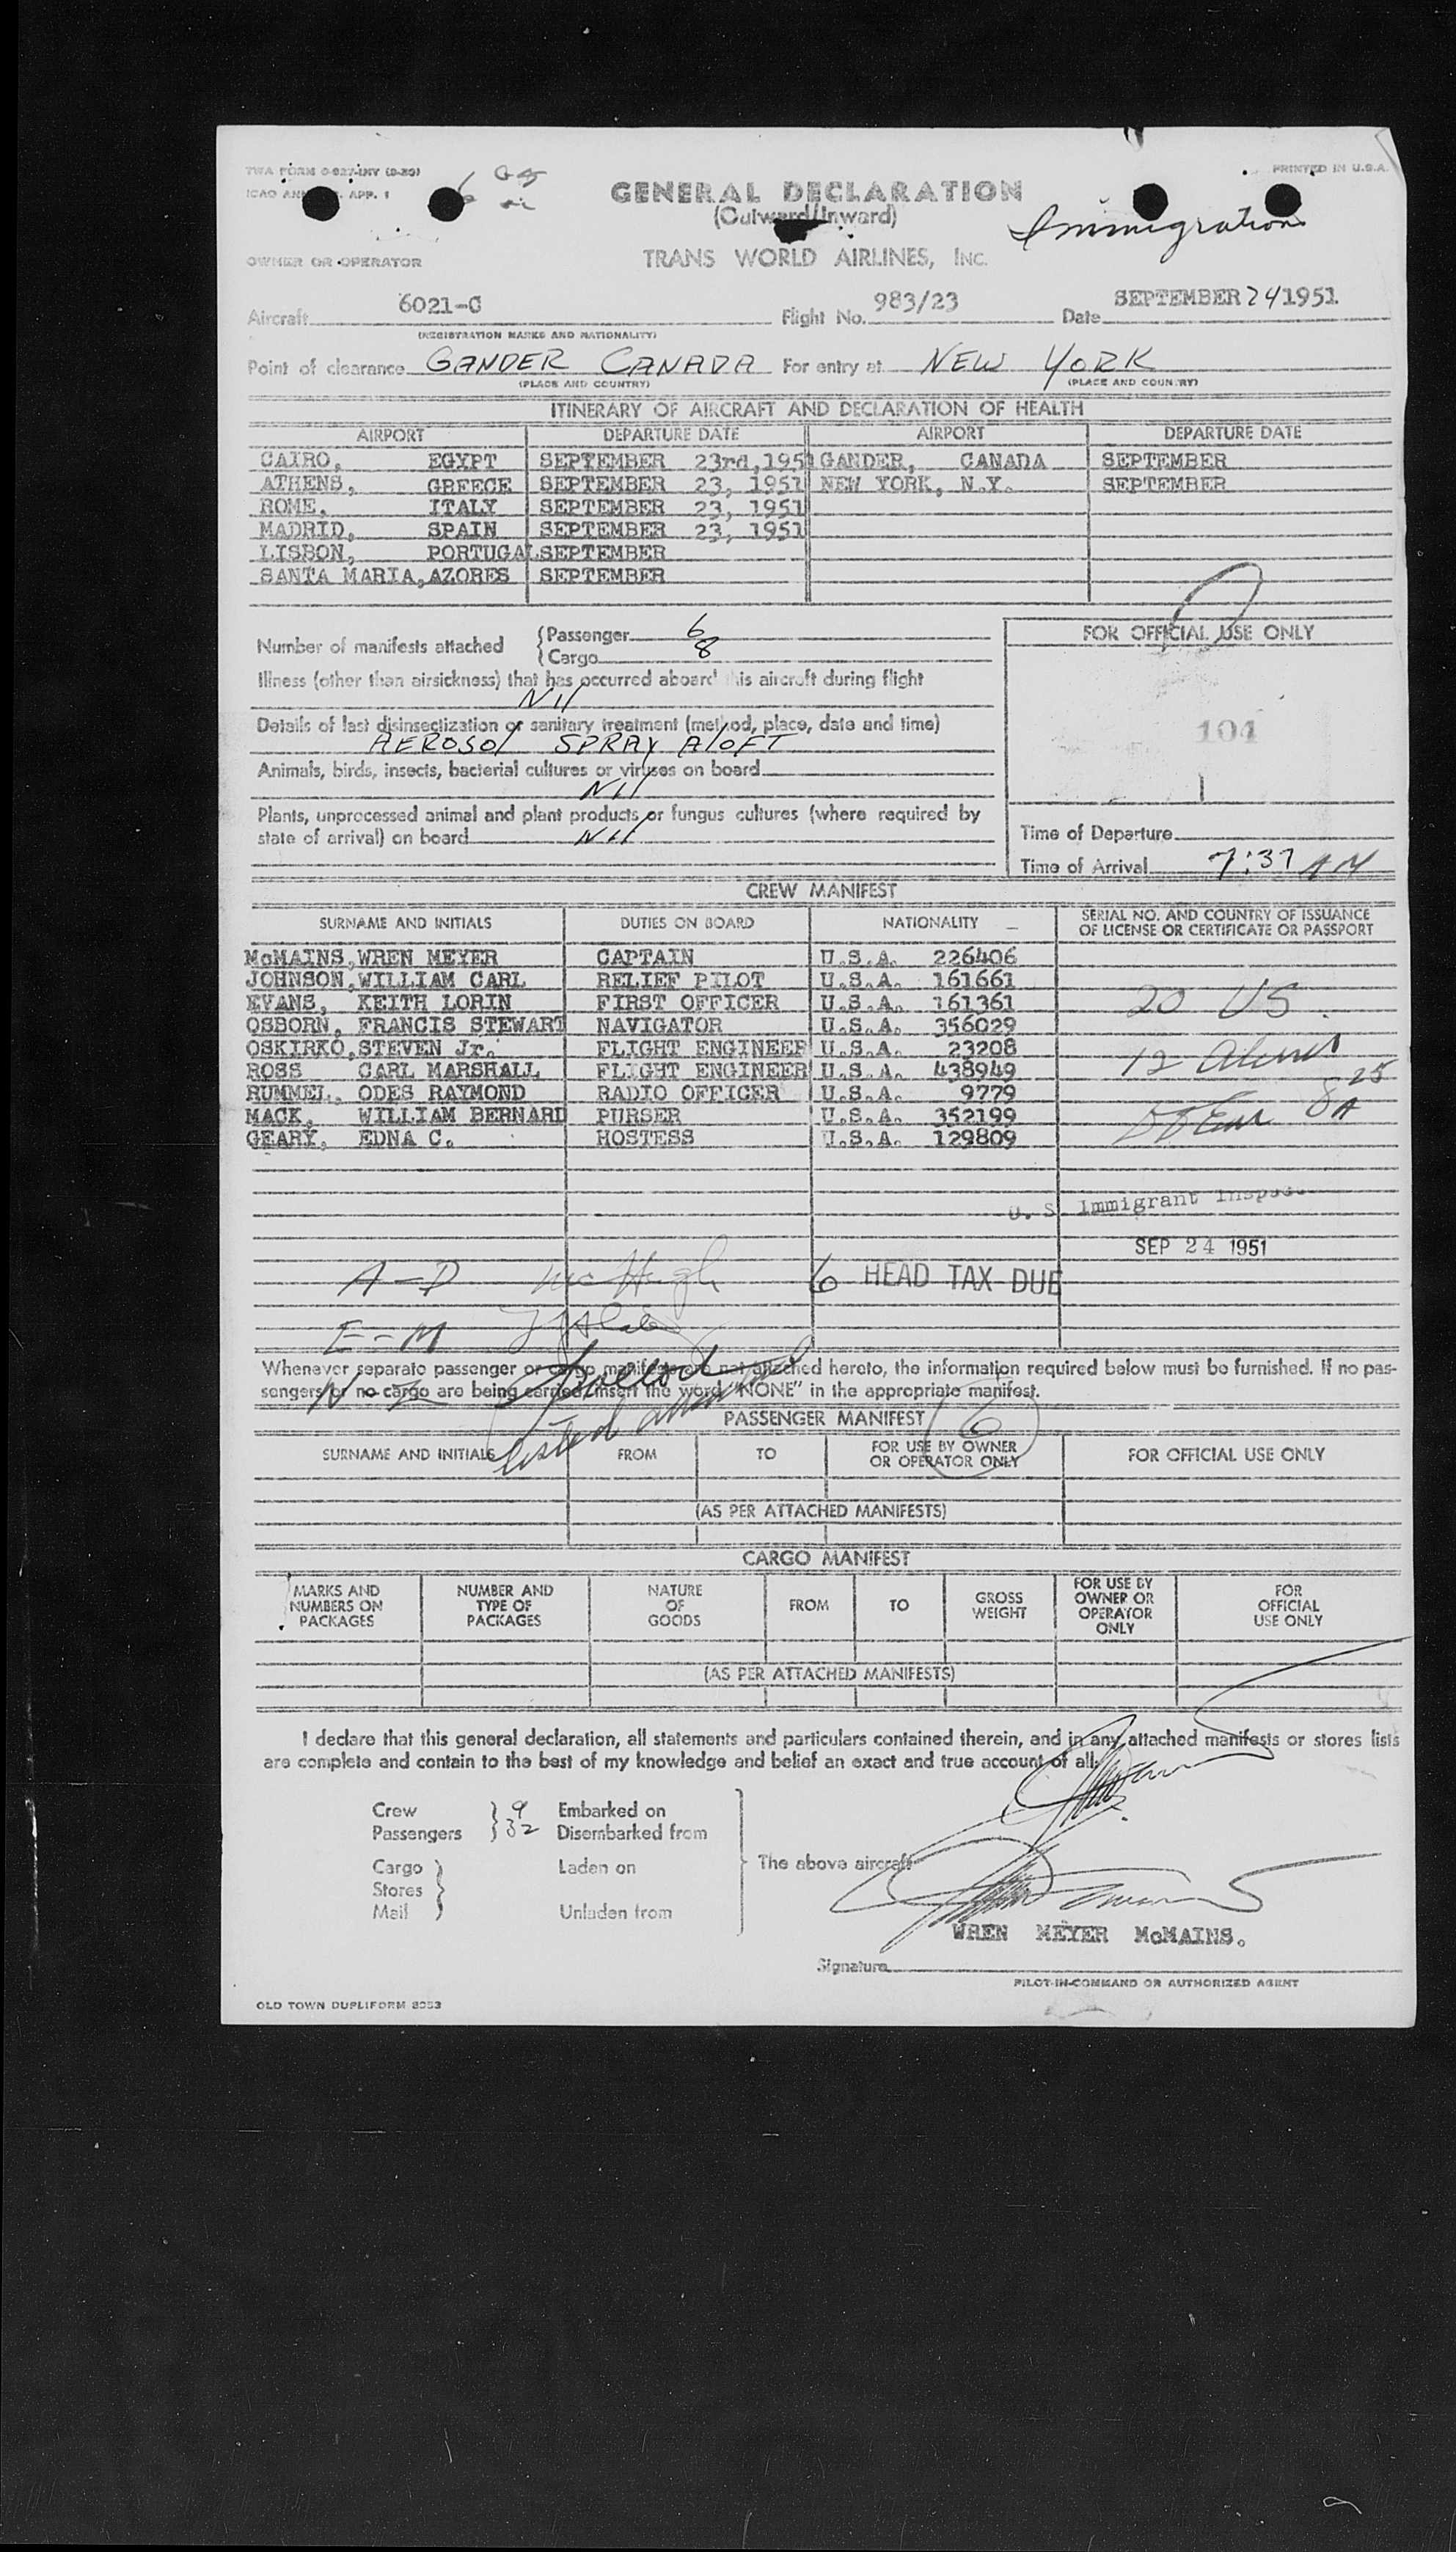 TWA FORM O-927-INY
PRINTED IN U.S.A.
ICAO APP. 1
GENERAL DECLARATION
(Outward/Inward)
Immigration
OWNER OR OPERATOR
TRANS WORLD AIRLINES, INC.
Aircraft 6021-C Flight No. 983/23 Date SEPTEMBER 24 1951
(REGISTRATION MARKS AND NATIONALITY)
Point of clearance GANDER CANADA For entry at NEW YORK
(PLACE AND COUNTRY) (PLACE AND COUNTRY)
ITINERARY OF AIRCRAFT AND DECLARATION OF HEALTH
AIRPORT DEPARTURE DATE AIRPORT DEPARTURE DATE
CAIRO, EGYPT SEPTEMBER 23rd,1951 GANDER, CANADA SEPTEMBER
ATHENS, GREECE SEPTEMBER 23, 1951 NEW YORK, N.Y. SEPTEMBER
ROME, ITALY SEPTEMBER 23, 1951
MADRID, SPAIN SEPTEMBER 23, 1951
LISBON, PORTUGAL SEPTEMBER
SANTA MARIA, AZORES SEPTEMBER
Number of manifests attached {Passenger 6
{Cargo 8
FOR OFFICIAL USE ONLY
Illness (other than airsickness) that has occurred aboard this aircraft during flight
Nil
Details of last disinsectization or sanitary treatment (method, place, date and time)
AEROSOl SPRAY AlOFT
104
Animals, birds, insects, bacterial cultures or viruses on board
Nil
Plants, unprocessed animal and plant products or fungus cultures (where required by
state of arrival) on board Nil
Time of Departure
Time of Arrival 7:37 AM
CREW MANIFEST
SURNAME AND INITIALS DUTIES ON BOARD NATIONALITY SERIAL NO. AND COUNTRY OF ISSUANCE
OF LICENSE OR CERTIFICATE OR PASSPORT
McMAINS, WREN MEYER CAPTAIN U.S.A. 226406
JOHNSON, WILLIAM CARL RELIEF PILOT U.S.A. 161661
EVANS, KEITH LORIN FIRST OFFICER U.S.A. 161361
20 US
OSBORN, FRANCIS STEWART NAVIGATOR U.S.A. 356029
OSKIRKO, STEVEN Jr. FLIGHT ENGINEER U.S.A. 23208
12 Aliens
ROSS CARL MARSHALL FLIGHT ENGINEER U.S.A. 438949
RUMMEL, ODES RAYMOND RADIO OFFICER U.S.A. 9779
8 25 A
MACK, WILLIAM BERNARD PURSER U.S.A. 352199
GEARY, EDNA C. HOSTESS U.S.A. 129809
U. S. Immigrant
SEP 24 1951
A-D McHugh 6 HEAD TAX DUE
E-M
Whenever separate passenger or cargo manifests are not attached hereto, the information required below must be furnished. If no pas-
sengers or no cargo are being carried, insert the word "NONE" in the appropriate manifest.
N-Z
listed
PASSENGER MANIFEST
6
SURNAME AND INITIALS FROM TO FOR USE BY OWNER
OR OPERATOR ONLY FOR OFFICIAL USE ONLY
(AS PER ATTACHED MANIFESTS)
CARGO MANIFEST
MARKS AND
NUMBERS ON
PACKAGES
NUMBER AND
TYPE OF
PACKAGES
NATURE
OF
GOODS
FROM
TO
GROSS
WEIGHT
FOR USE BY
OWNER OR
OPERATOR
ONLY
FOR
OFFICIAL
USE ONLY
(AS PER ATTACHED MANIFESTS)
I declare that this general declaration, all statements and particulars contained therein, and in any attached manifests or stores lists
are complete and contain to the best of my knowledge and belief an exact and true account of all:
Crew } 9 Embarked on
Passengers } 32 Disembarked from
Cargo Laden on
The above aircraft
Stores
Mail Unladen from
WREN MEYER McMAINS.
Signature
PILOT-IN-COMMAND OR AUTHORIZED AGENT
OLD TOWN DUPLIFORM